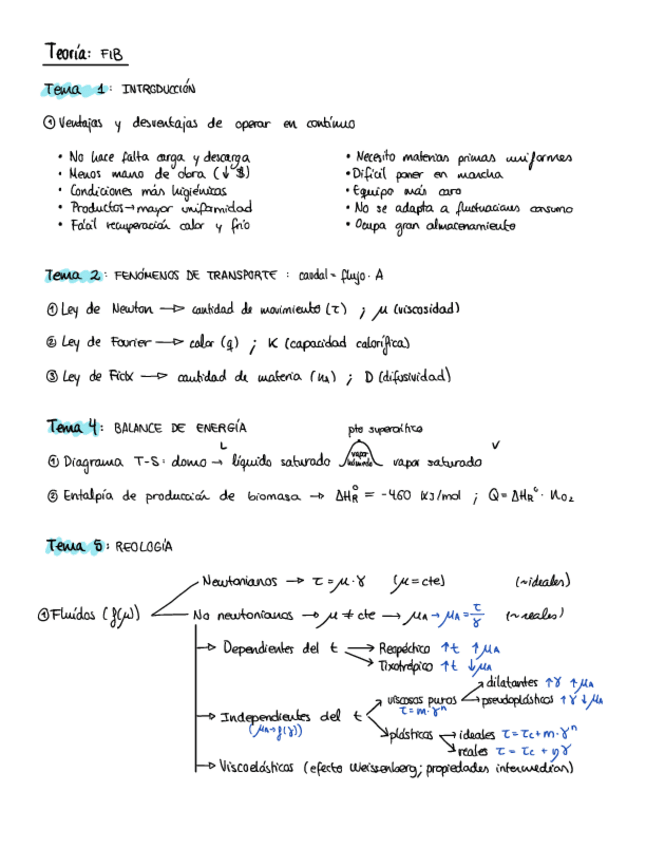 Teoría: FIB
Tema 1: INTRODUCCIÓN
① Ventajas y desventajas de operar en contínuo
• No hace falta carga y descarga
• Menos mano de obra (↓ $)
• Condiciones más higiénicas
• Productos → mayor uniformidad
• Fácil recuperación calor y frío
• Necesito materias primas uniformes
• Difícil poner en marcha
• Equipo más caro
• No se adapta a fluctuaciones consumo
• Ocupa gran almacenamiento
Tema 2: FENÓMENOS DE TRANSPORTE : caudal = flujo · A
① Ley de Newton → cantidad de movimiento (τ) ; μ (viscosidad)
② Ley de Fourier → calor (q) ; K (capacidad calorífica)
③ Ley de Fick → cantidad de materia (nA) ; D (difusividad)
Tema 4: BALANCE DE ENERGÍA
pto supercrítico
L V
① Diagrama T-S: domo → líquido saturado vapor húmedo vapor saturado
② Entalpía de producción de biomasa → ΔHR° = -460 KJ/mol ; Q = ΔHR° · nO2
Tema 5: REOLOGÍA
Newtonianos → τ = μ · γ (μ = cte) (~ideales)
① Fluidos (f(μ))
No newtonianos → μ ≠ cte → μA → μA = τ/γ (~reales)
→ Dependientes del t → Reopéctico ↑t ↑μA
→ Tixotrópico ↑t ↓μA
→ dilatantes ↑γ ↑μA
viscosos puros → pseudoplásticos ↑γ ↓μA
τ = m · γⁿ
→ Independientes del t
(μA → f(γ))
plásticos → ideales τ = τc + m · γⁿ
→ reales τ = τc + η γ
→ Viscoelásticos (efecto Weissenberg; propiedades intermedias)